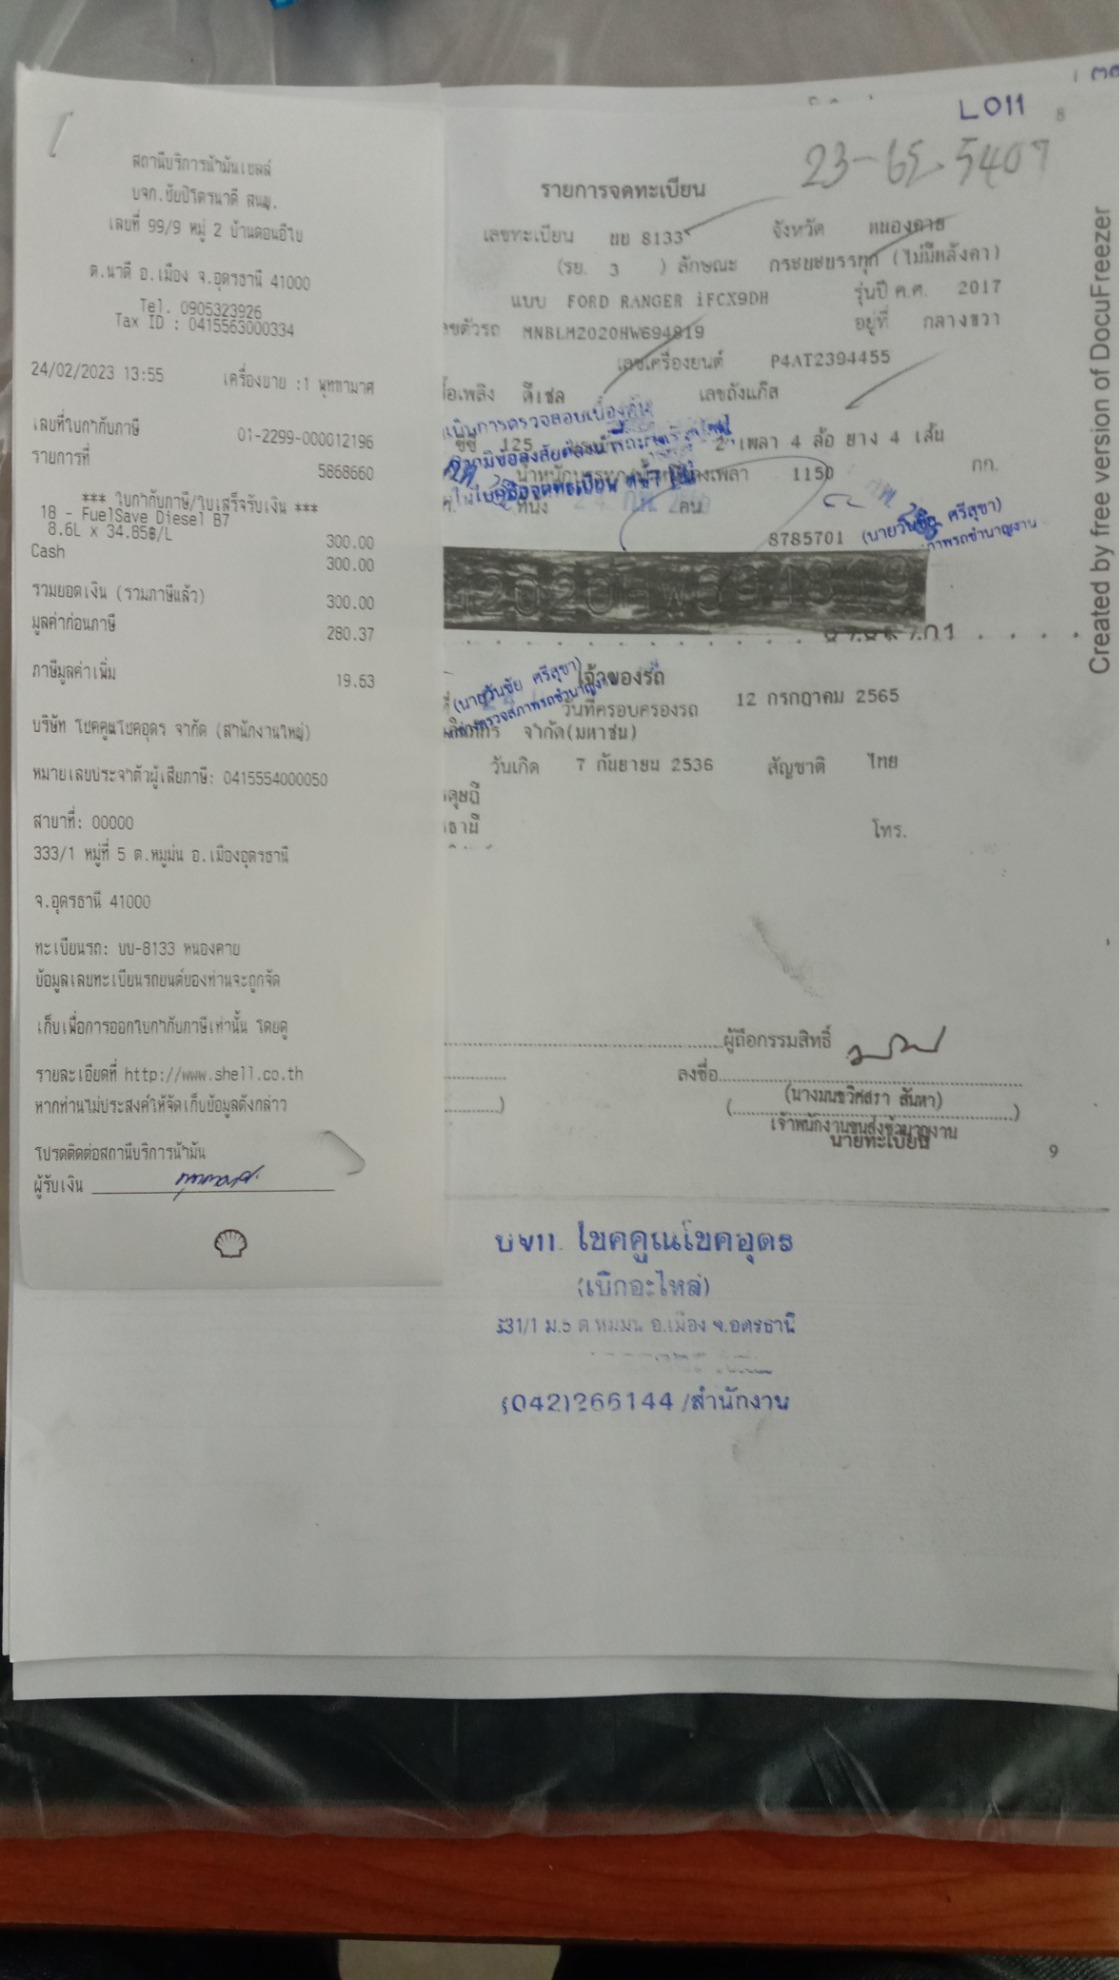 สถานีบริการน้ำมันเชลล์
บจก.ชัยปิโตรนาดี สนญ.
เลขที่ 99/9 หมู่ 2 บ้านดอนอีไข
ต.นาดี อ.เมือง จ.อุดรธานี 41000
Tel. 0905323926
Tax ID : 0415563000334
24/02/2023 13:55 เครื่องขาย :1 พุทธามาศ
เลขที่ใบกำกับภาษี 01-2299-000012196
รายการที่ 5868660
*** ใบกำกับภาษี/ใบเสร็จรับเงิน ***
18 - FuelSave Diesel B7
8.6L x 34.85฿/L 300.00
Cash 300.00
รวมยอดเงิน (รวมภาษีแล้ว) 300.00
มูลค่าก่อนภาษี 280.37
ภาษีมูลค่าเพิ่ม 19.63
บริษัท โชคคูณโชคอุดร จำกัด (สำนักงานใหญ่)
หมายเลขประจำตัวผู้เสียภาษี: 0415554000050
สาขาที่: 00000
333/1 หมู่ที่ 5 ต.หมูม่น อ.เมืองอุดรธานี
จ.อุดรธานี 41000
ทะเบียนรถ: บบ-8133 หนองคาย
ข้อมูลเลขทะเบียนรถยนต์ของท่านจะถูกจัด
เก็บเพื่อการออกใบกำกับภาษีเท่านั้น โดยดู
รายละเอียดที่ http://www.shell.co.th
หากท่านไม่ประสงค์ให้จัดเก็บข้อมูลดังกล่าว
โปรดติดต่อสถานีบริการน้ำมัน
ผู้รับเงิน
L011
8
23-65-5407
รายการจดทะเบียน
เลขทะเบียน บบ 8133 จังหวัด หนองคาย
(รย. 3 ) ลักษณะ กระบะบรรทุก (ไม่มีหลังคา)
แบบ FORD RANGER iFCX9DH รุ่นปี ค.ศ. 2017
ขตัวรถ MNBLM2020HW694819 อยู่ที่ กลางขวา
เลขเครื่องยนต์ P4AT2394455
ชื้อเพลิง ดีเซล เลขถังแก๊ส
ซีซี 125 2 เพลา 4 ล้อ ยาง 4 เส้น
1150 กก.
ที่นั่ง คน
8785701 (นายวันชัย ศรีสุขา)
เจ้าของรถ
(นายวันชัย ศรีสุขา)
วันที่ครอบครองรถ 12 กรกฎาคม 2565
จำกัด(มหาชน)
วันเกิด 7 กันยายน 2536 สัญชาติ ไทย
โทร.
ผู้ถือกรรมสิทธิ์
ลงชื่อ
เจ้าพนักงานขนส่งชำนาญงาน
นายทะเบียน
9
บจก. โชคคูณโชคอุดร
(เบิกอะไหล่)
331/1 ม.5 ต.หมูม่น อ.เมือง จ.อุดรธานี
(042)266144 /สำนักงาน
Created by free version of DocuFreezer